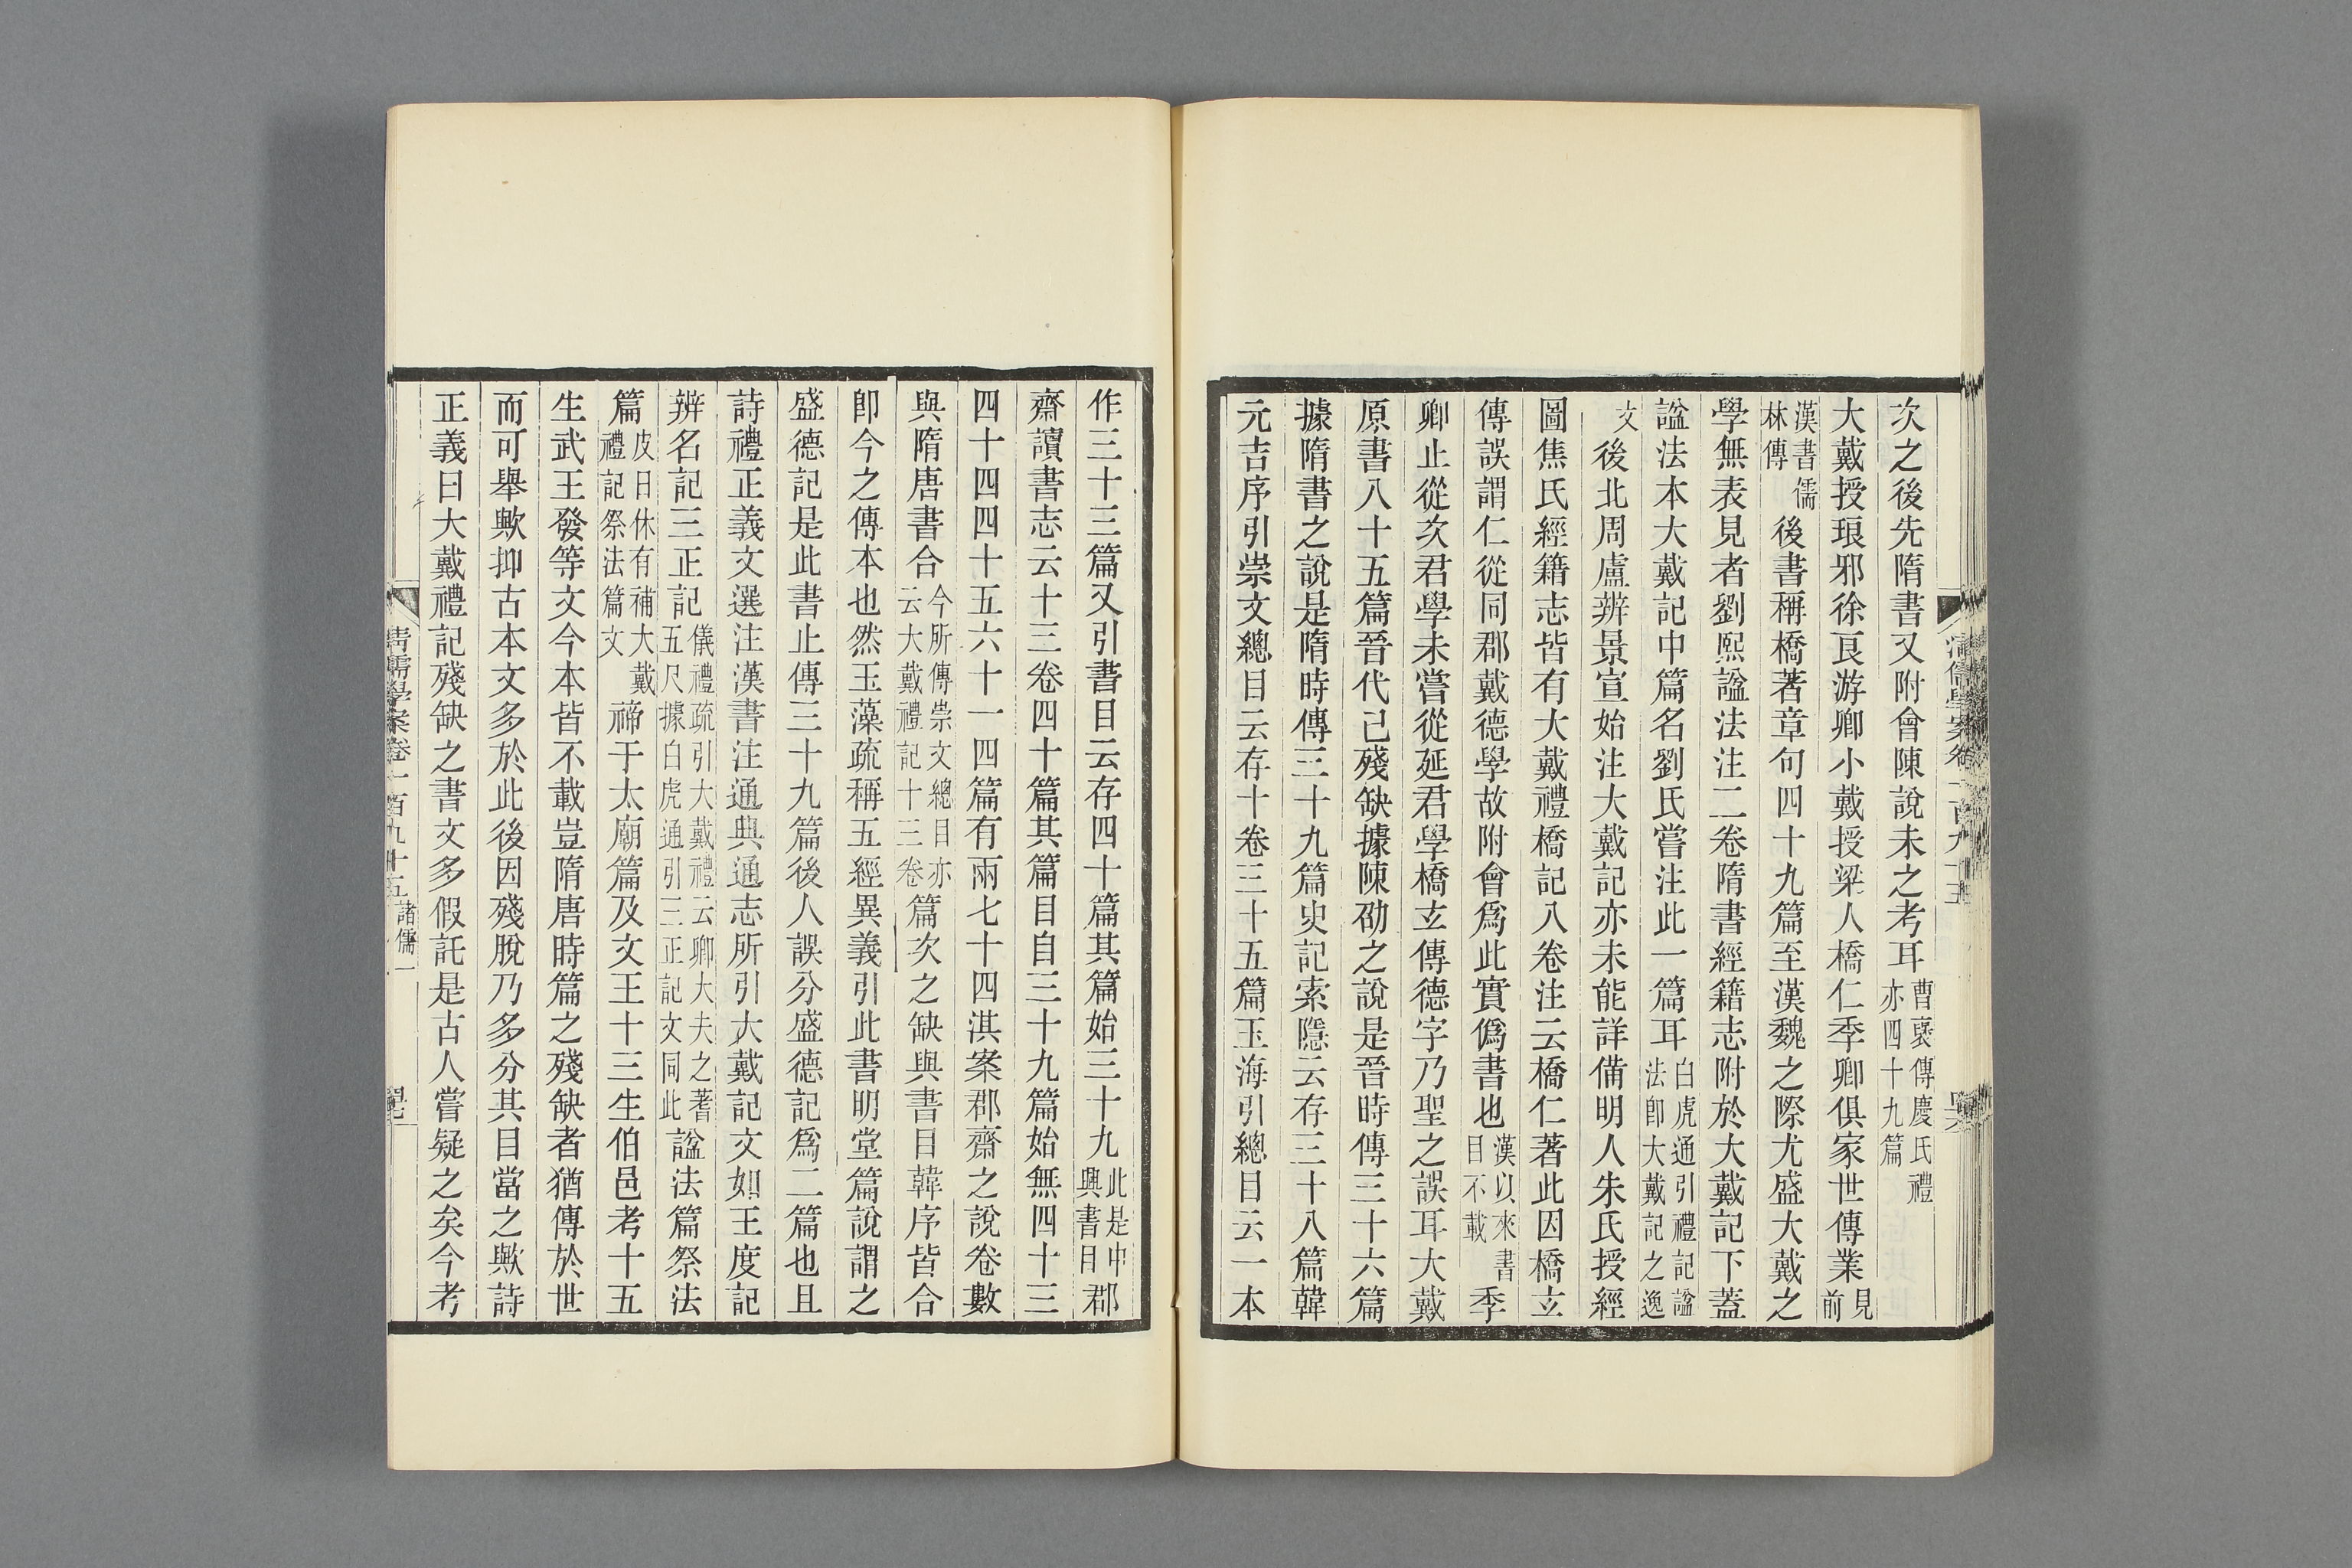 次之後先隋書又附會陳說未之考耳曹襃傳慶氏禮亦四十九篇
大戴授琅邪徐良游卿小戴授梁人橋仁季卿俱家世傳業見前
漢書儒林傳後書稱橋著章句四十九篇至漢魏之際尤盛大戴之
學無表見者劉熙諡法注二卷隋書經籍志附於大戴記下蓋
諡法本大戴記中篇名劉氏嘗注此一篇耳白虎通引禮記諡法卽大戴記之逸
文後北周盧辨景宣始注大戴記亦未能詳備明人朱氏授經
圖焦氏經籍志皆有大戴禮橋記八卷注云橋仁著此因橋玄
傳誤謂仁從同郡戴德學故附會爲此實僞書也漢以來書目不載季
卿止從次君學未嘗從延君學橋玄傳德字乃聖之誤耳大戴
原書八十五篇晉代已殘缺據陳劭之說是晉時傳三十六篇
據隋書之說是隋時傳三十九篇史記索隱云存三十八篇韓
元吉序引崇文總目云存十卷三十五篇玉海引總目云一本
作三十三篇又引書目云存四十篇其篇始三十九此是中興書目郡
齋讀書志云十三卷四十篇其篇目自三十九篇始無四十三
四十四四十五六十一四篇有兩七十四淇案郡齋之說卷數
與隋唐書合今所傳崇文總目亦云大戴禮記十三卷篇次之缺與書目韓序皆合
卽今之傳本也然玉藻疏稱五經異義引此書明堂篇說謂之
盛德記是此書止傳三十九篇後人誤分盛德記爲二篇也且
詩禮正義文選注漢書注通典通志所引大戴記文如王度記
辨名記三正記儀禮疏引大戴禮云卿大夫之蓍五尺據白虎通引三正記文同此諡法篇祭法
篇皮日休有補大戴禮記祭法篇文禘于太廟篇及文王十三生伯邑考十五
生武王發等文今本皆不載豈隋唐時篇之殘缺者猶傳於世
而可舉歟抑古本文多於此後因殘脫乃多分其目當之歟詩
正義曰大戴禮記殘缺之書文多假託是古人嘗疑之矣今考
清儒學案卷一百九十五 諸儒一